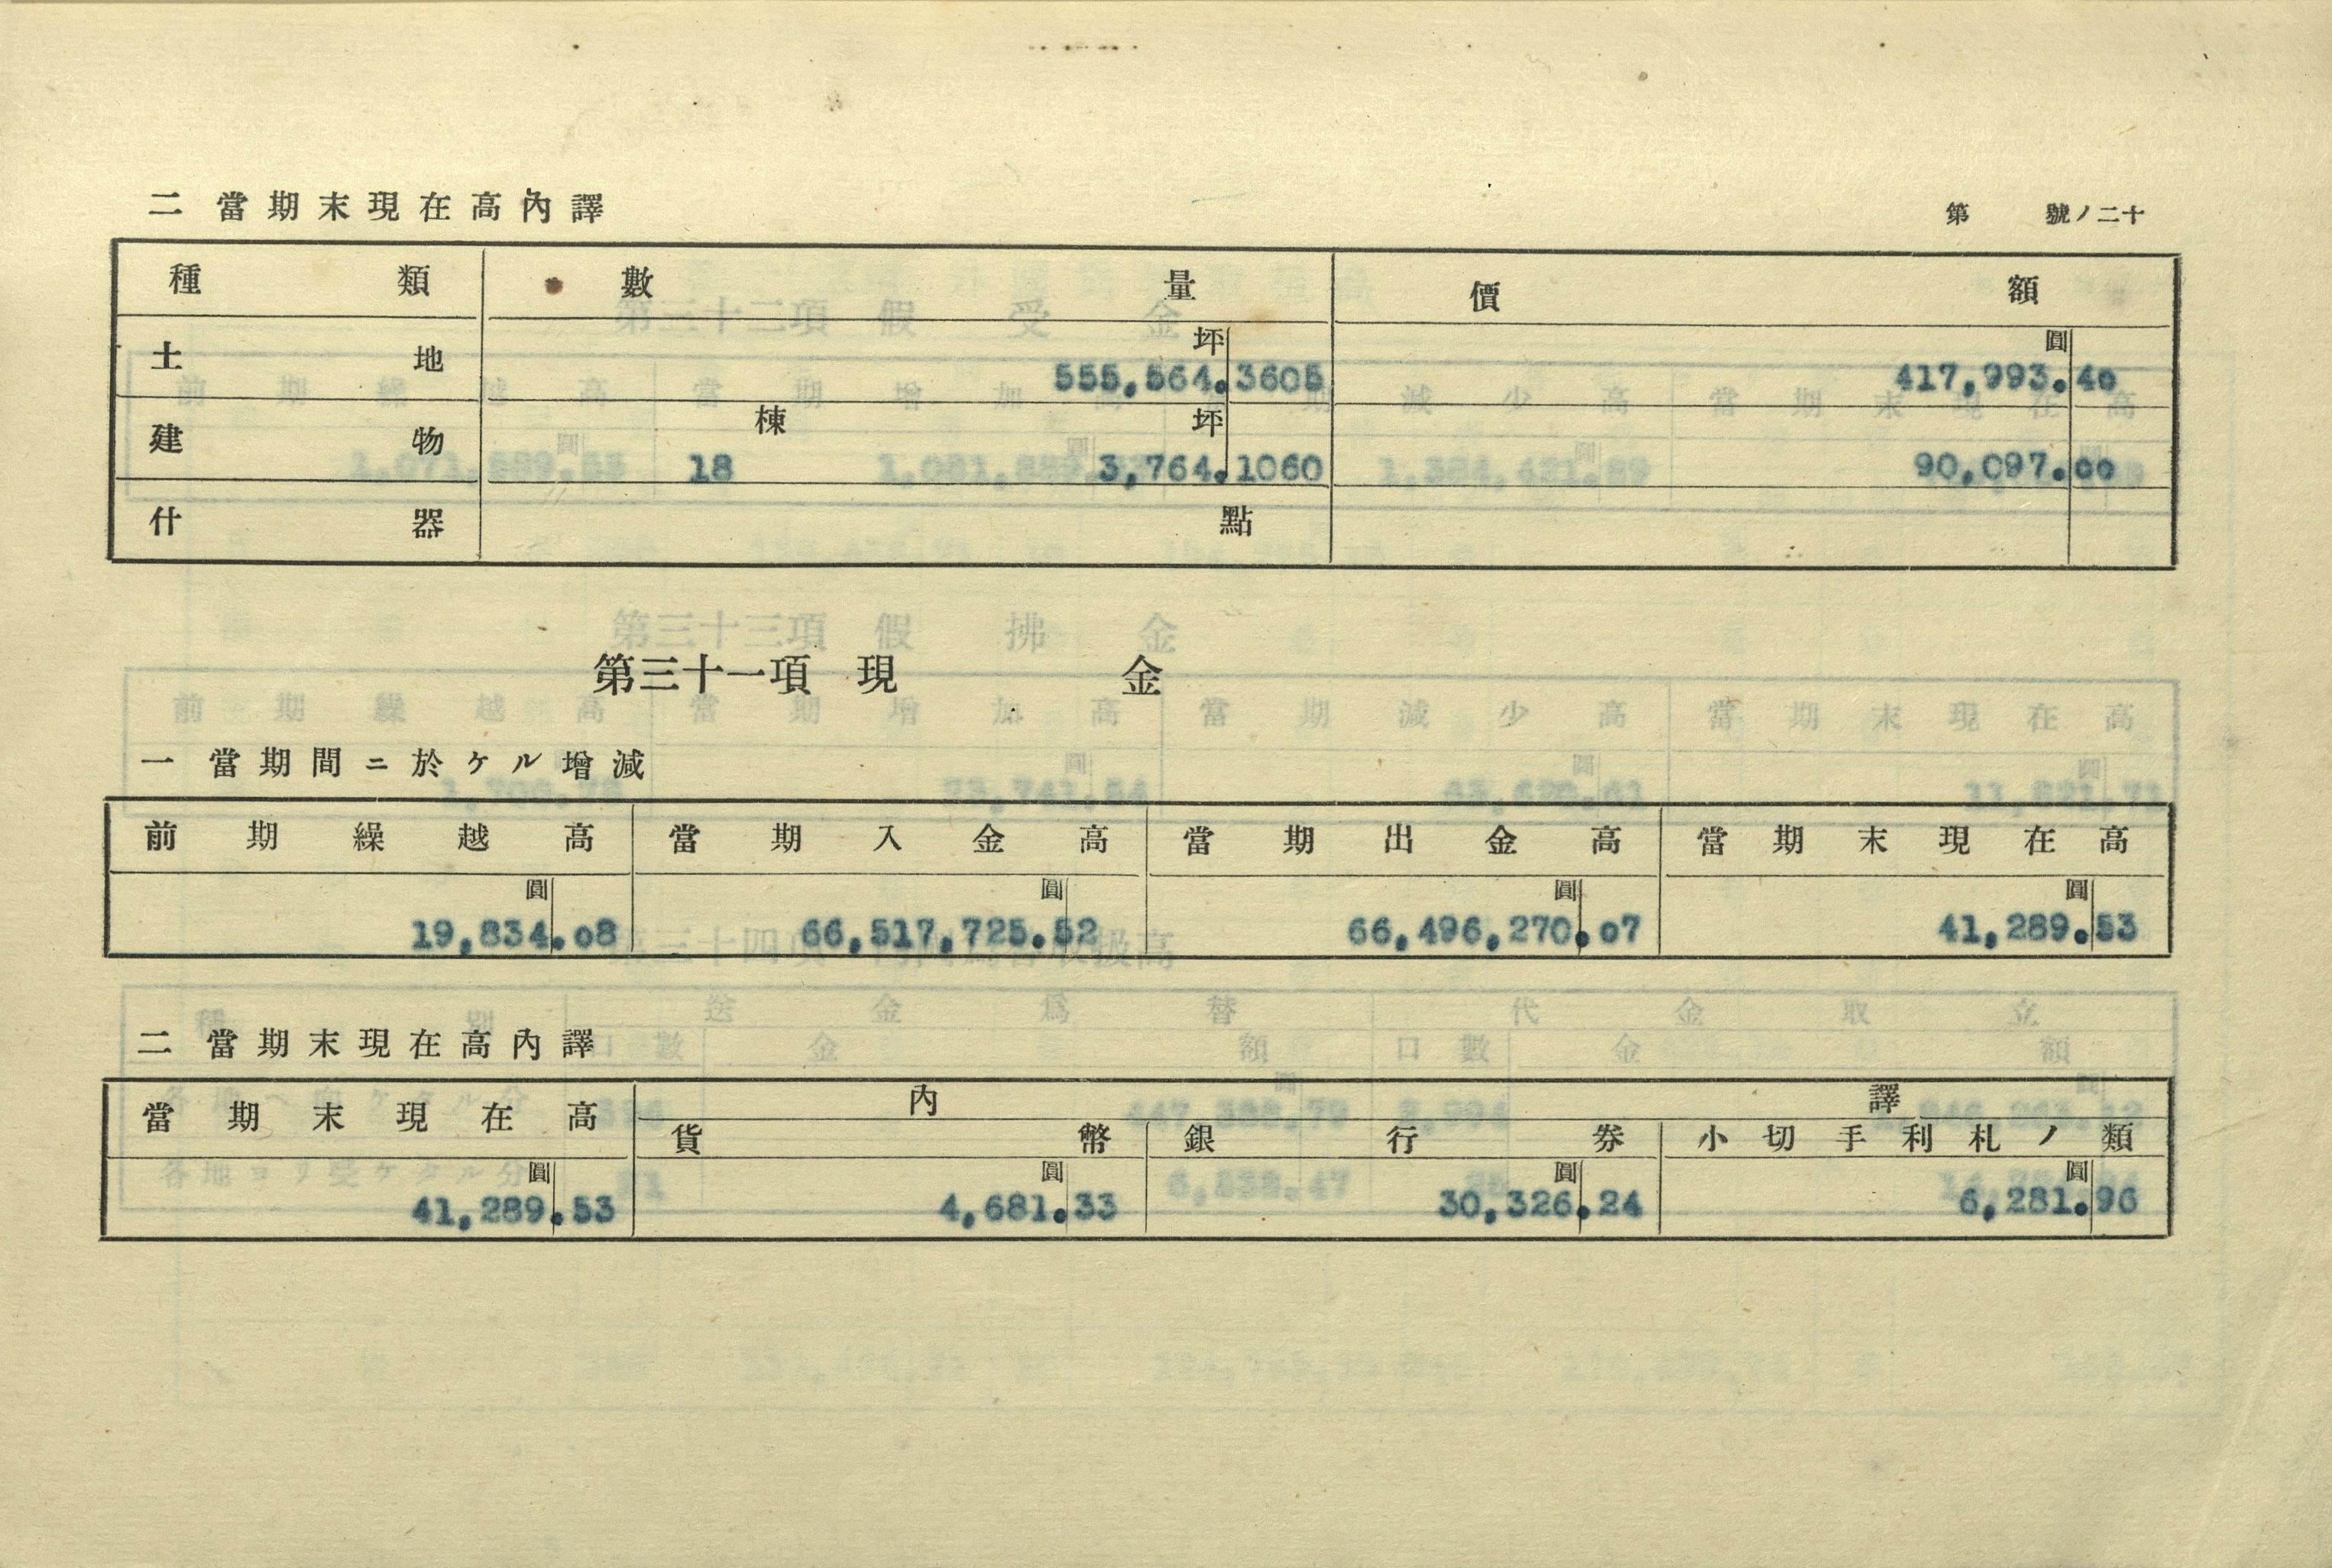 二 當期末現在高內譯
第 號ノ二十
種類 數量 價額
土地 坪 555,564.3605 圓 417,993.40
建物 棟 18 坪 3,764.1060 90,097.00
什器 點
第三十一項 現金
一 當期間ニ於ケル增減
前期繰越高 當期入金高 當期出金高 當期末現在高
圓 圓 圓 圓
19,834.08 66,517,725.52 66,496,270.07 41,289.53
二 當期末現在高內譯
當期末現在高 內譯
貨幣 銀行券 小切手利札ノ類
圓 圓 圓 圓
41,289.53 4,681.33 30,326.24 6,281.96